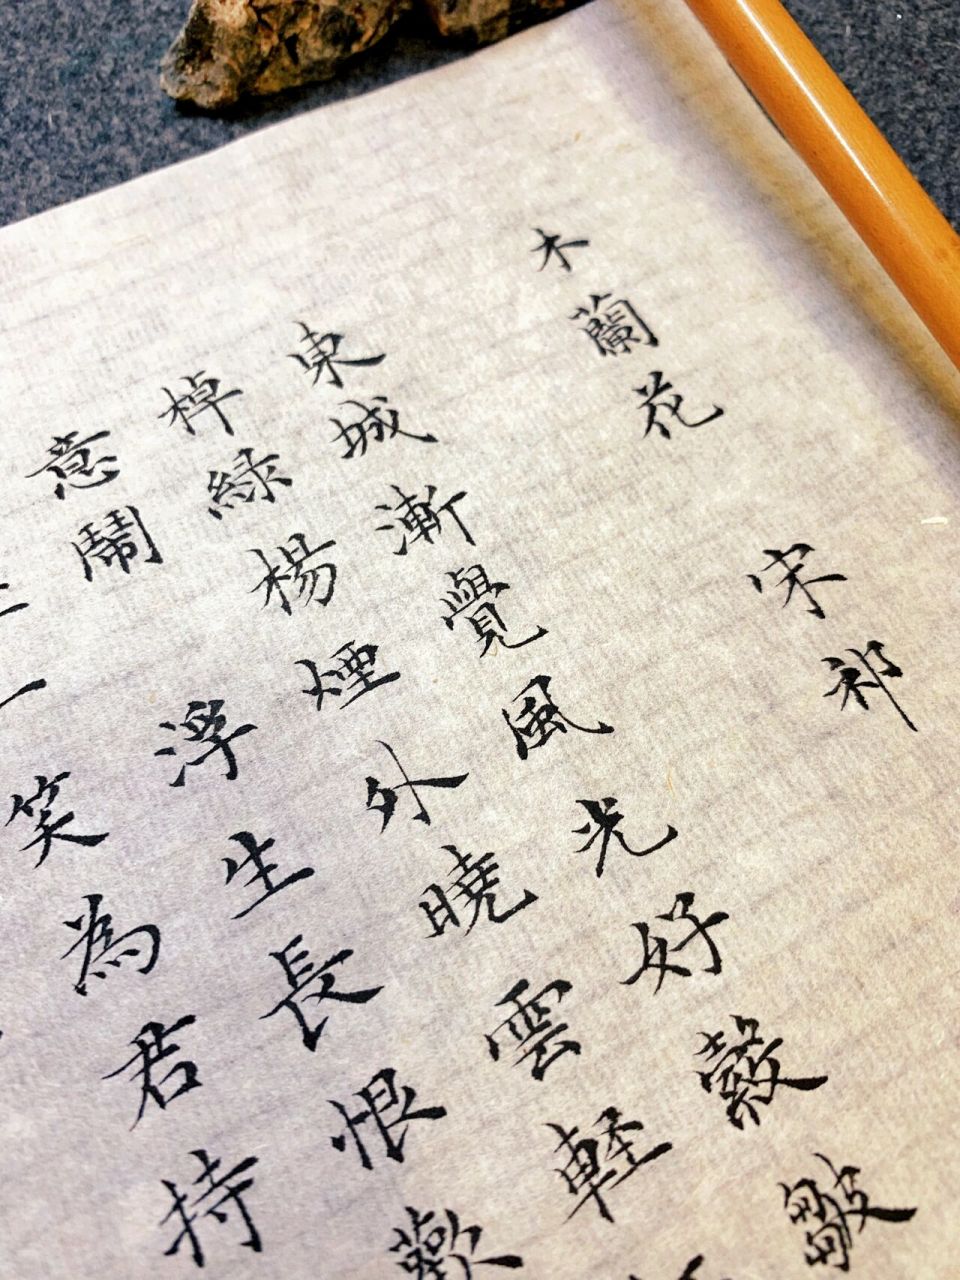 木蘭花 宋祁
東城漸覺風光好縠皺
棹綠楊煙外曉雲輕
意鬧 浮生長恨歡
笑為君持